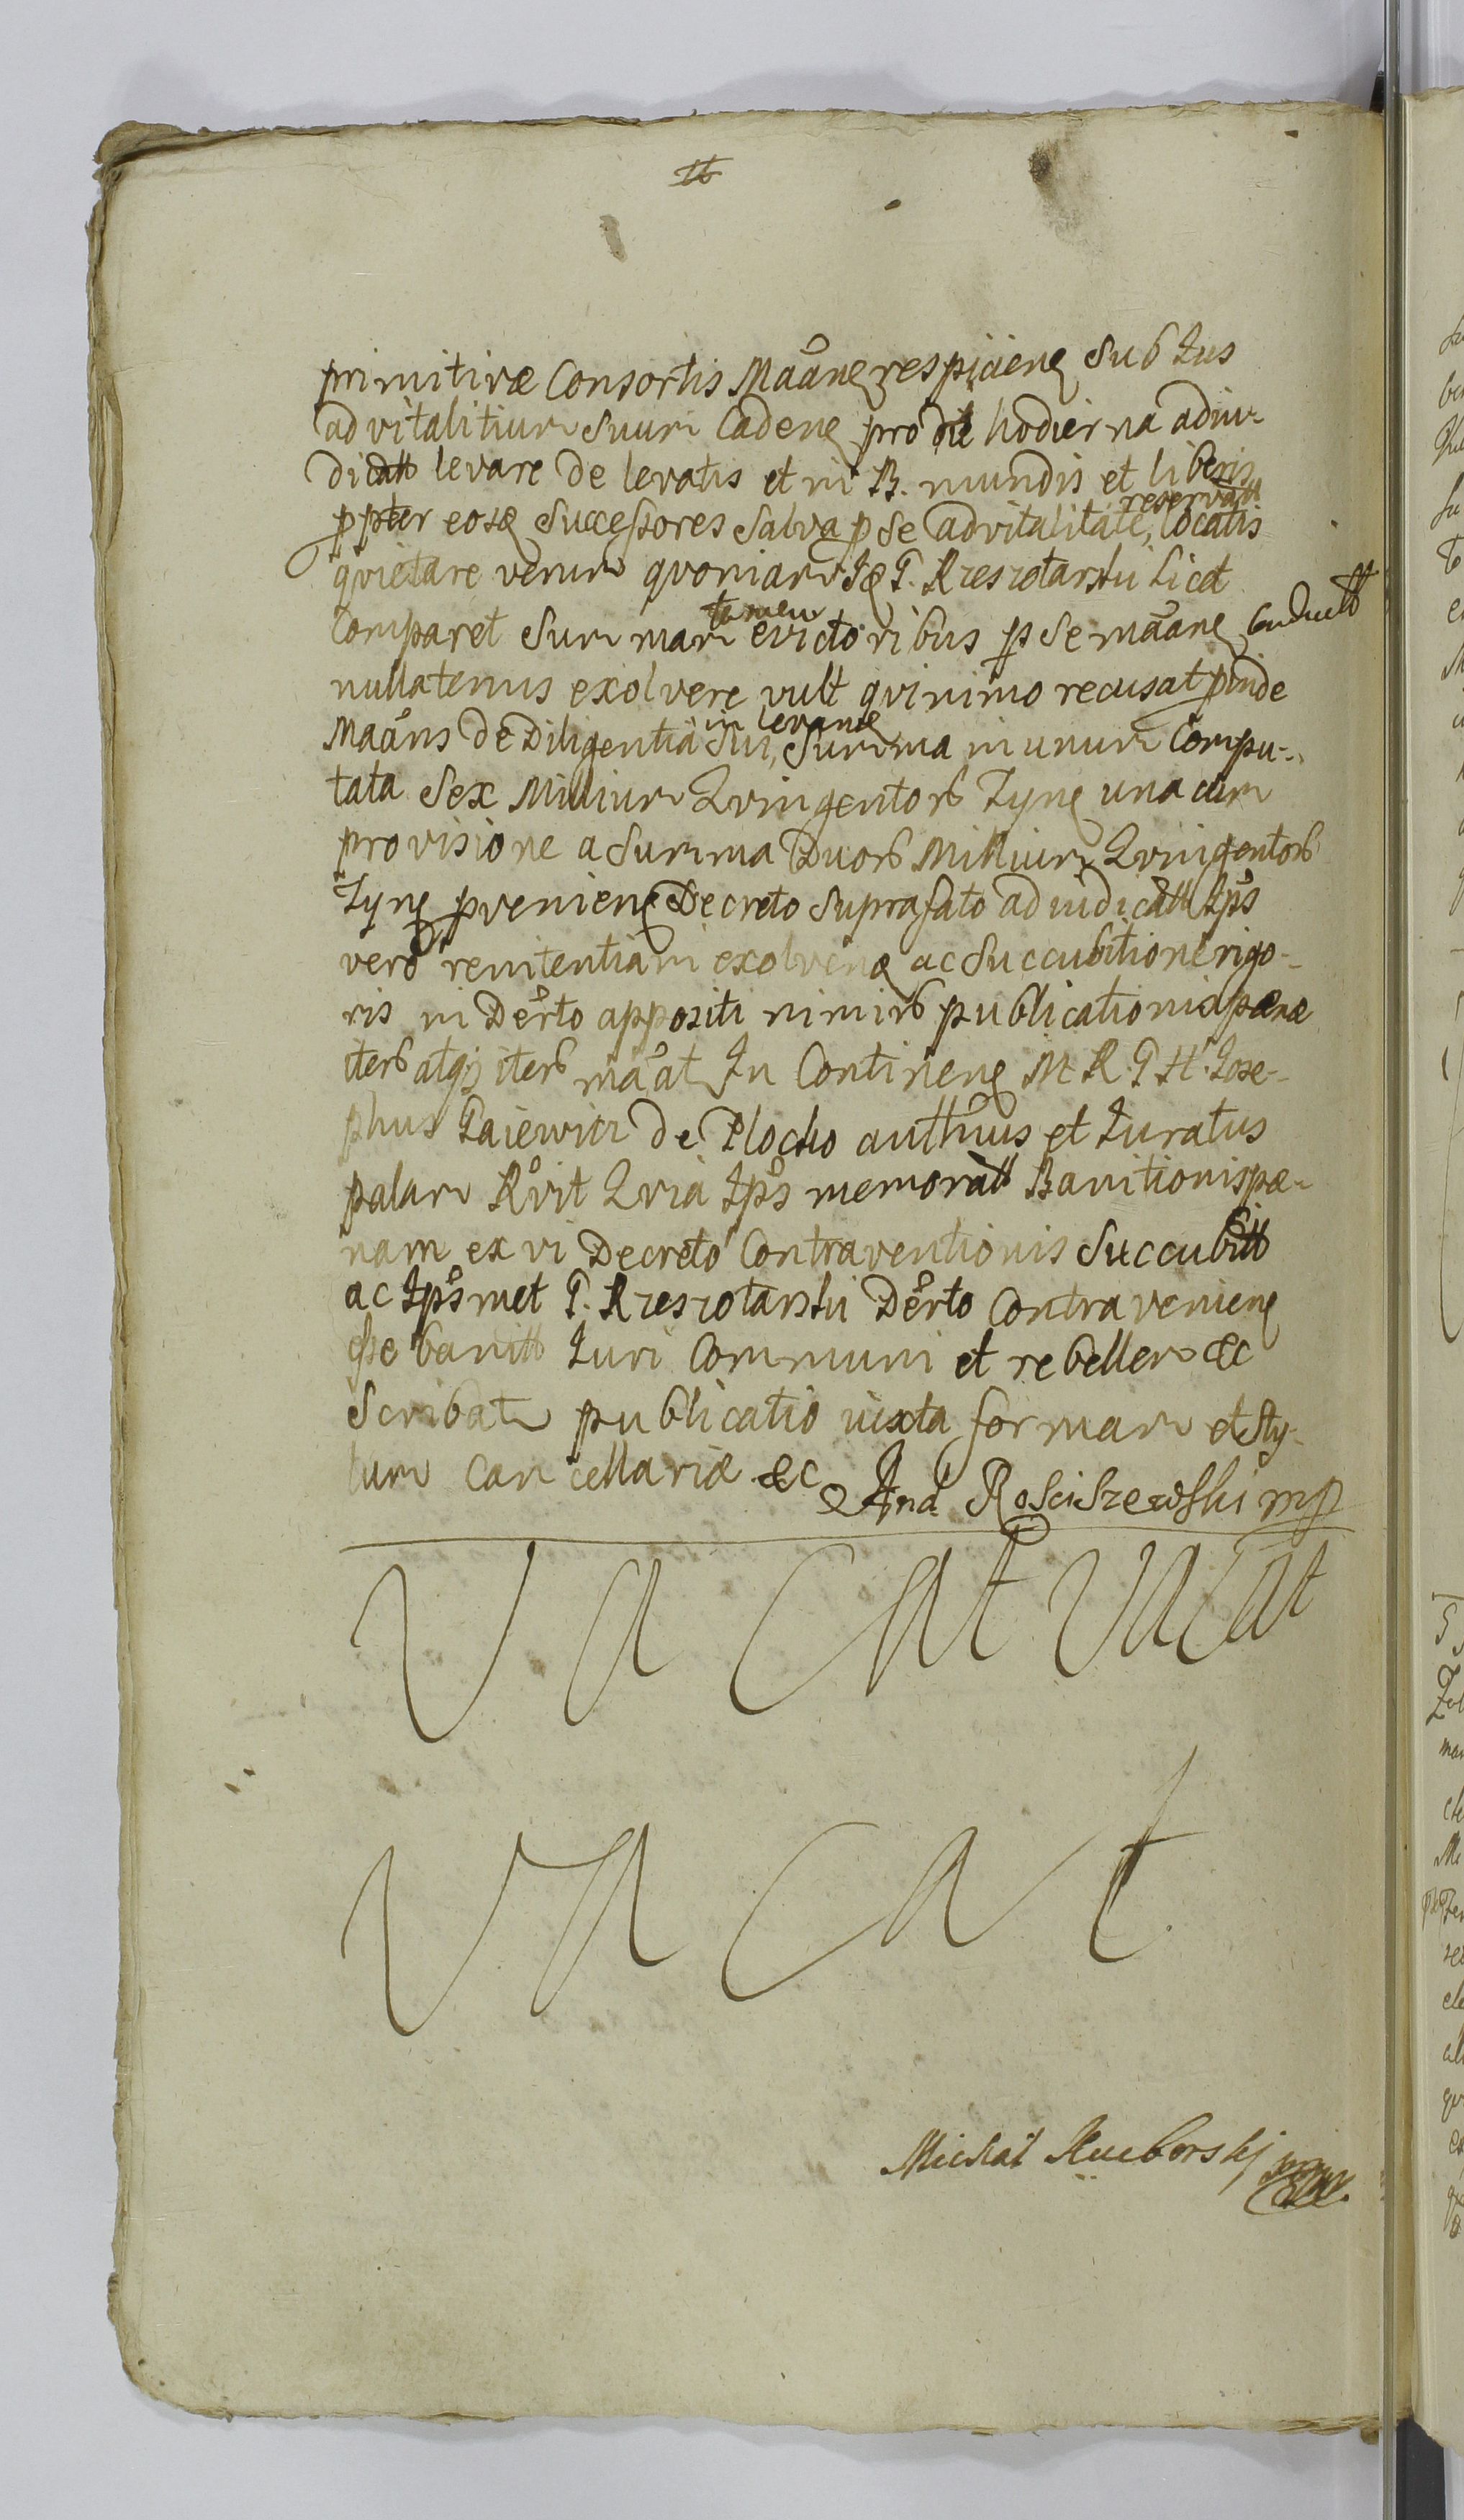 primitivæ Consortis Maånę respicienę Sub Jus
advitalitium Suum Cadenę pro die hodierna adiu-
dicatt levare de levatis et in B. mundis et liberis
reservatt
ppter eosq Successores Salva p se advitalitate, locatis
qvietare verum qvoniam Jdę P. Krzeszotarski Licet
tamen
Comparet Summam evictoribus p se maånę Conductt
nullatenus exolvere vult qvinimo recusat pinde
in levandę
Maåns de Diligentia Sui, Summa in unum Compu-
tata Sex Millium Qvingentorb Tynę una cum
provisione a Summa Duorb Millium Qvingentorb
Tynę pvenienę Decreto Suprafato adiudicatt Jpŝs
vero renitentiam exolvenę ac Succubitione rigo-
ris in Deřto appositi nimirb publicationis pænæ
iterb atqȝ iterb maåt In Continenę M. R. P. H. Jose-
phus Paiewicz de Plocko authnus et Juratus
palam Rvit Qvia Jpŝs memoratt Banitionis pæ-
nam ex vi Decreto Contraventionis Succubitt
ac Jpŝsmet P. Krzeszotarski Deřto Contravenienę
esse banitt Juri Communi et rebellem &c
Scribatr publicatio iuxta formam et Sty-
lum Cancellariæ &c And Rosciszewski mp
Vacat Vacat
Vacat